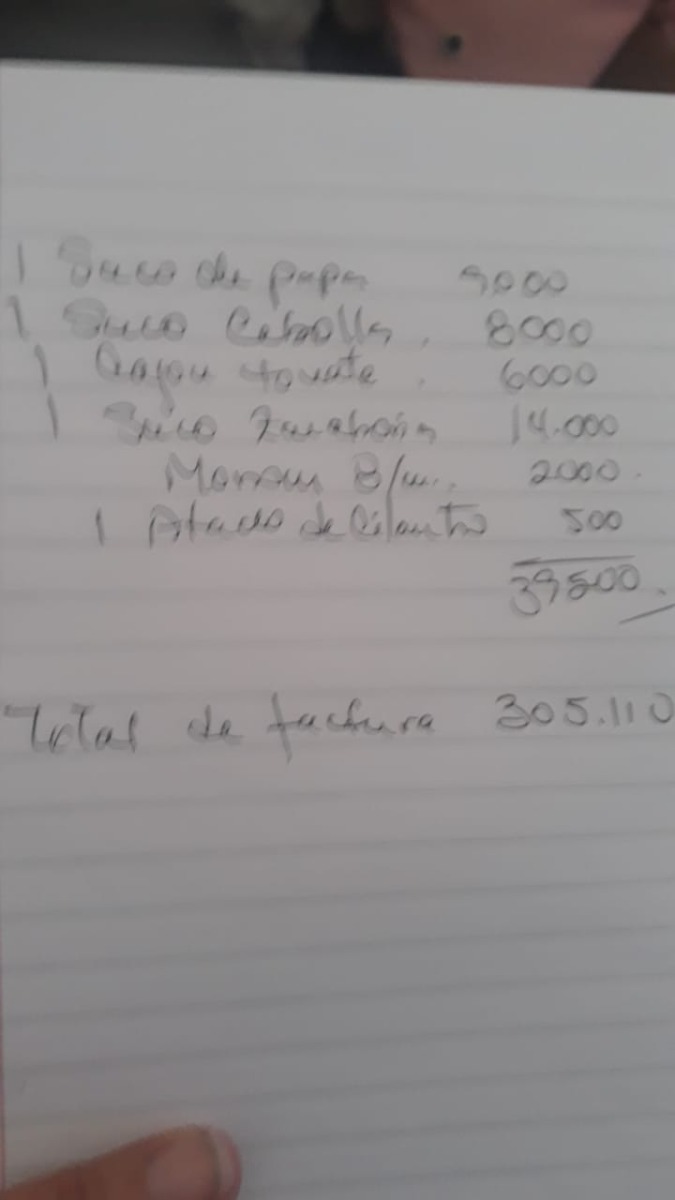 1 Saco de papa 9000
1 Saco Cebolla. 8000
1 Cajon tomate. 6000
1 Saco Zanahoria 14.000
2000.
1 Atado de Cilantro 500
39500.
Total de factura 305.110